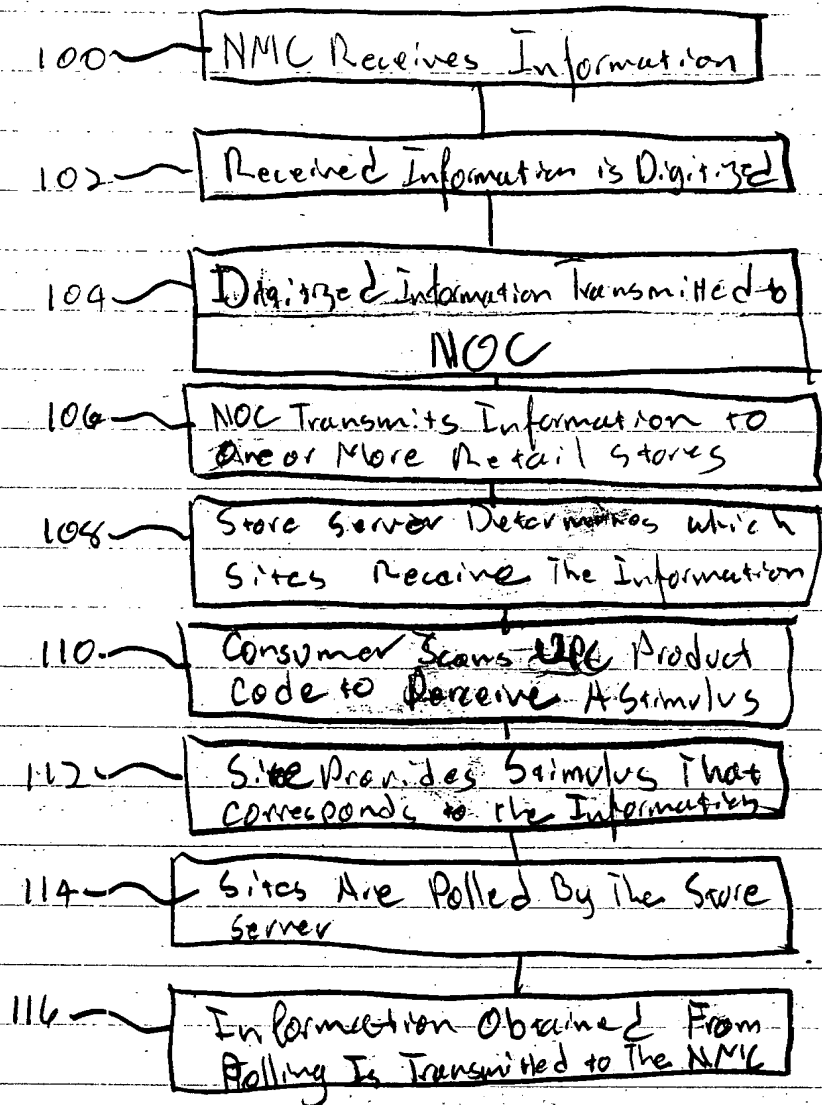 100 NMC Receives Information
102 Received Information is Digitized
104 Digitized Information Transmitted to
NOC
106 NOC Transmits Information to
One or More Retail Stores
108 Store Server Determines which
Sites Receive The Information
110 Consumer Scans Product
Code to Perceive A Stimulus
112 Site Provides Stimulus That
corresponds to the Information
114 Sites Are Polled By The Store
Server
116 Information Obtained From
Polling Is Transmitted to The NMC